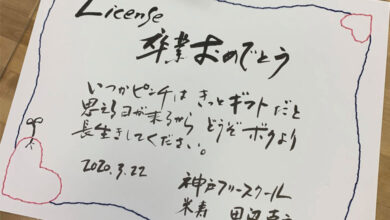 License
卒業おめでとう
いつかピンチは きっとギフトだと
思える日が来るから どうぞボクより
長生きしてください。
2020.3.22
神戸フリースクール
米寿 田辺